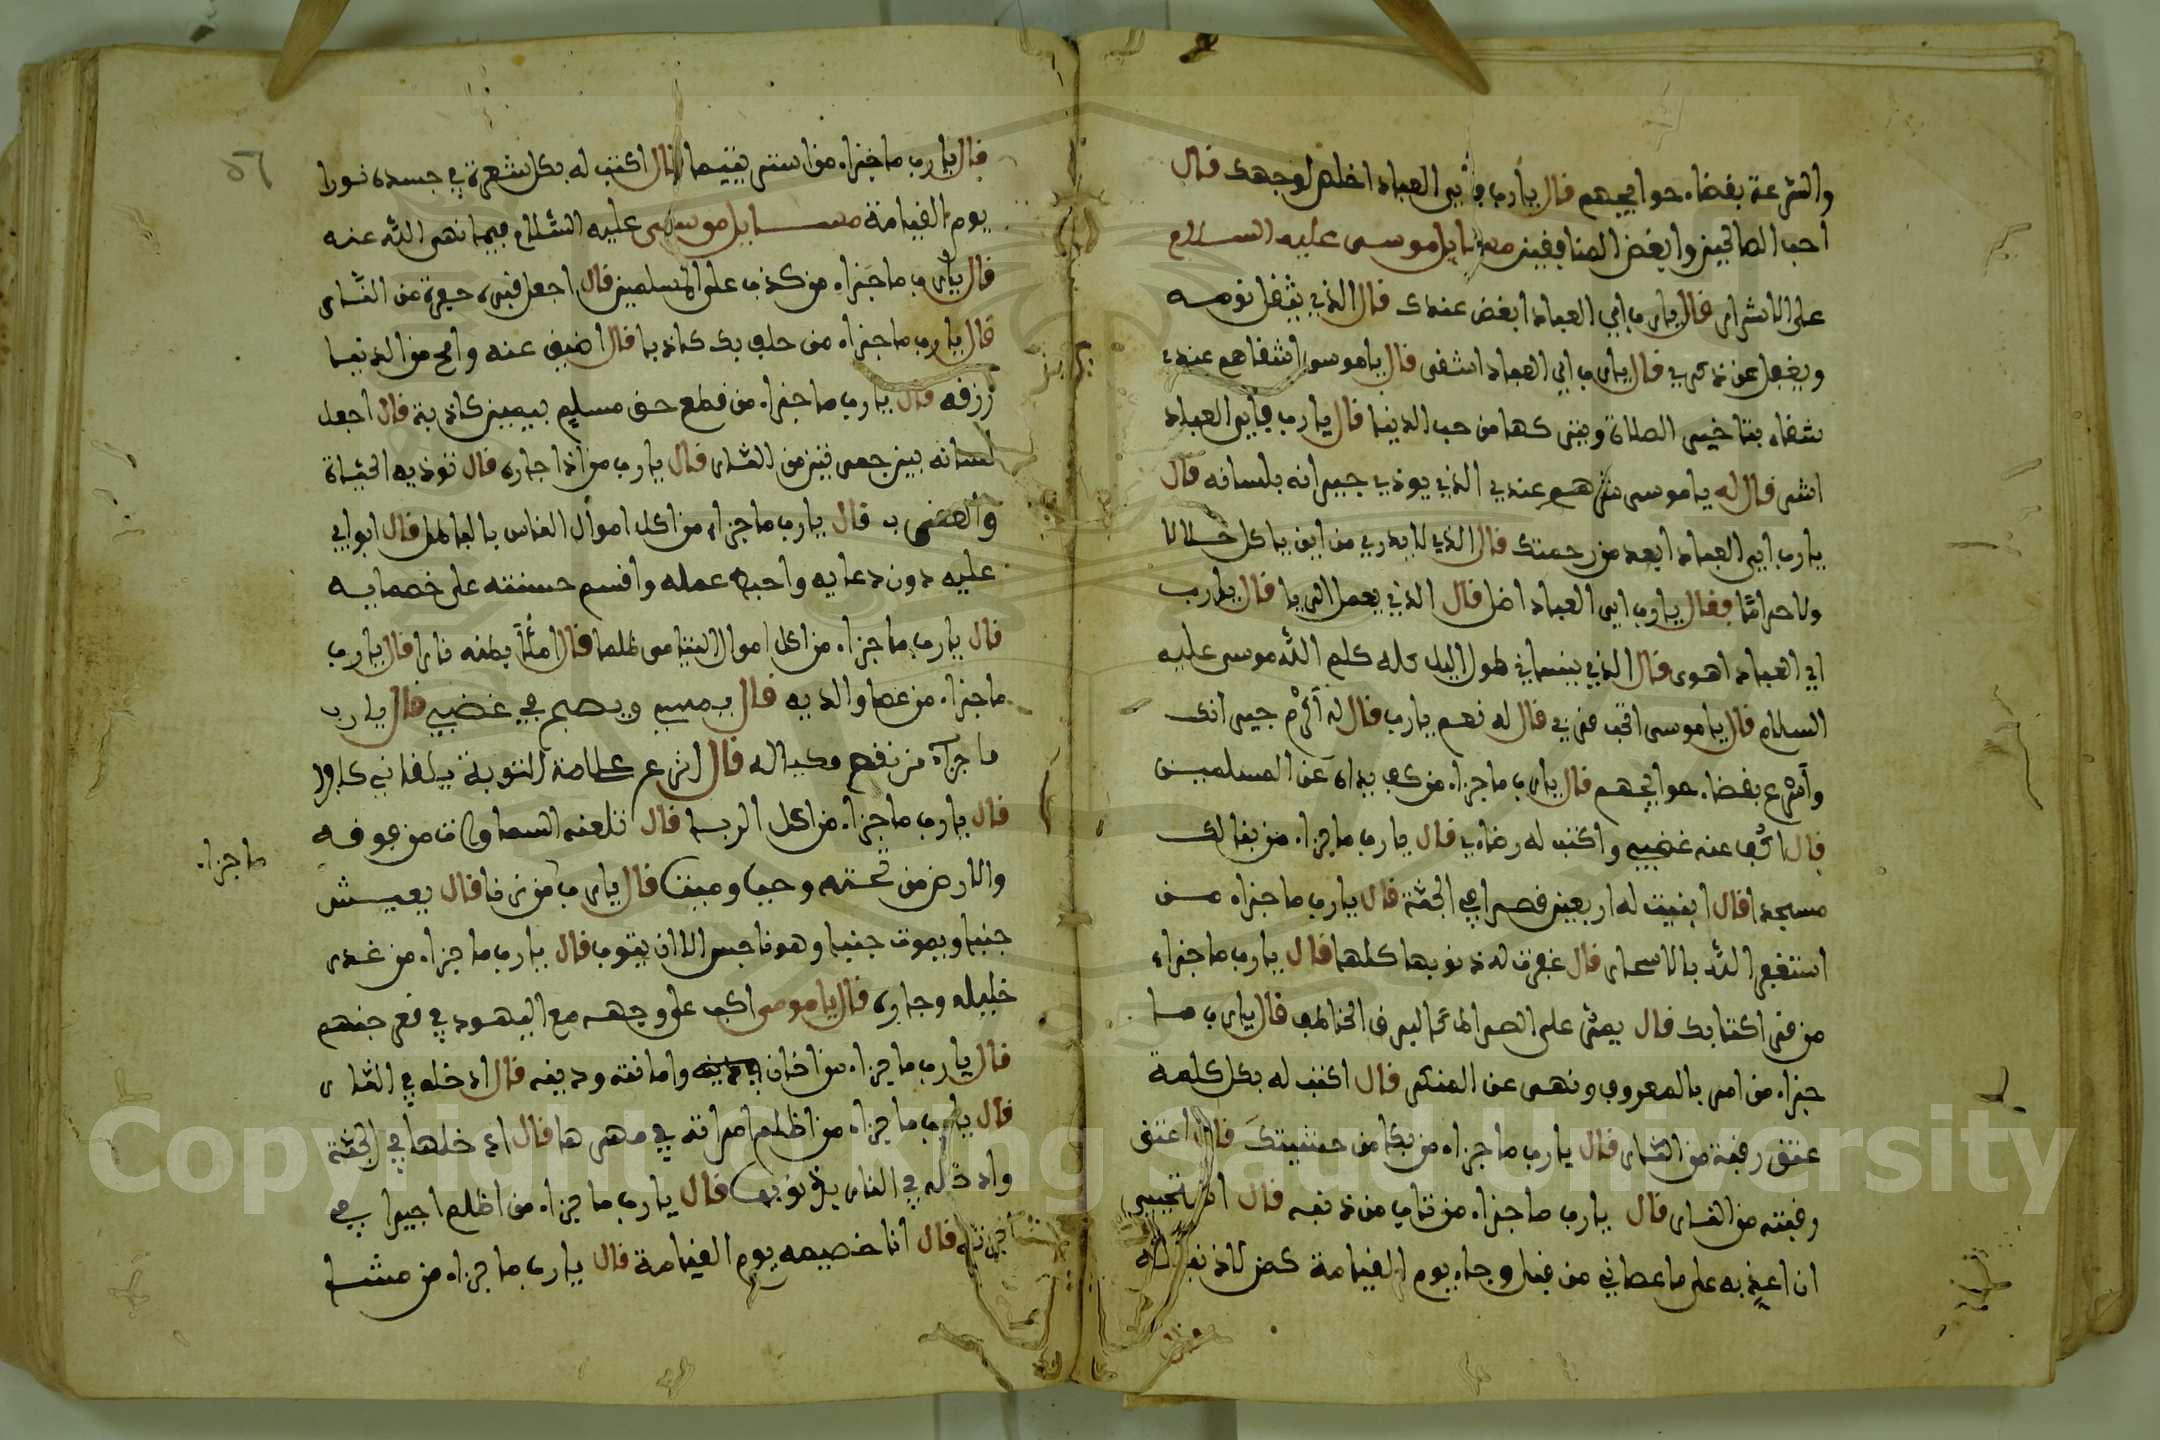 والسرعة بقضاء حوايجهم قال يا رب فأي العباد اخلص لوجهك قال
احب الصالحين وابغض المنافقين مسايل موسى عليه السلام
على الاشرار قال يا رب اي العباد ابغض عندك قال الذي يثقل نومه
ويغفل عن ذكري قال يا رب اي العباد اشقى قال يا موسى اشقاهم عندي
شقاه بتاخير الصلاة ويتركها من حب الدنيا قال يا رب فأي العباد
اشر قال له يا موسى شرهم عندي الذي يوذي جيرانه بلسانه قال
يا رب اي العباد ابعد من رحمتك قال الذي لا يدري من اين ياكل حلالا
ولا حراما فقال يا رب اي العباد اضل قال الذي يعمل الريا قال يا رب
اي العباد اهوى قال الذي ينساني طول اليل كله كلم الله موسى عليه
السلام قال يا موسى اتحب قربي قال له نعم يا رب قال له أكرم جيرانك
وأسرع بقضاء حوايجهم قال يا رب ما جزاء من كف يداه عن المسلمين
قال اكف عنه غضبي واكتب له رضاي قال يا رب ما جزاء من بنا لك
مسجدا قال ابنيت له اربعين قصرا في الجنة قال يا رب ما جزاه من
استغفر الله بالاسحار قال غفرت له ذنوبها كلها قال يا رب ما جزاء
من قرا كتابك قال يمر على الصراط كالبرق الخاطف قال يا رب ما
جزاء من امر بالمعروف ونهى عن المنكر قال اكتب له بكل كلمة
عتق رقبة من النار قال يا رب ما جزاه من بكا من خشيتك قال اعتق
رقبته من النار قال يا رب ما جزاء من تاب من ذنبه قال
ان اعذبه على ما عصاني من قبل وجاه يوم القيامة كمن لا ذنب له
قال يا رب ما جزاء من استر يتيما قال اكتب له بكل شعرة في جسده نورا
يوم القيامة مسايل موسى عليه السلام فيما نهى الله عنه
قال يا رب ما جزاء من كذب على المسلمين قال اجعل قبره حفرة من النار
قال يا رب ما جزاه من حلف بك كاذبا قال اضيق عنه وامح من الدنيا
رزقه قال يا رب ما جزاء من قطع حق مسلم بيمين كاذبة قال اجعل
لسانه بين جمرتين من النار قال يا رب من اذا جاره قال توذيه الحياة
والعقرب قال يا رب ما جزاء من اكل اموال الناس بالباطل قال ابوابي
عليه دون دعايه واحبط عمله واقسم حسنته على خصمايه
قال يا رب ما جزاء من اكل اموال اليتامى ظلما قال املأ بطنه نارا قال يا رب
ما جزاء من عصا والديه قال يمسي ويصبح في غضبي قال يا رب
ما جزاء من نقص مكياله قال انزع حلاوة التوبة يلقاني كافرا
قال يا رب ما جزاء من اكل الربا قال تلعنه السماوات من فوقه
والارض من تحته وحيا وميتا قال يا رب من زنا قال يعيش
جنبا ويموت جنبا وهو ناجس الا ان يتوب قال يا رب ما جزاء من غدر
خليله وجاره قال يا موسى اكب على وجهه مع اليهود في قعر جهنم
قال يا رب ما جزاء من اخان وامانته وديعه قال ادخله في النار
قال يا رب ما جزاء من اظلم امراته في مهرها قال ادخلها في الجنة
وادخله في النار بذنوبها قال يا رب ما جزاء من اظلم اجيرا في
اجرته قال انا خصيمه يوم القيامة قال يا رب ما جزاه من مشا
ما جزاء
٥٦
Copyright © King Saud University